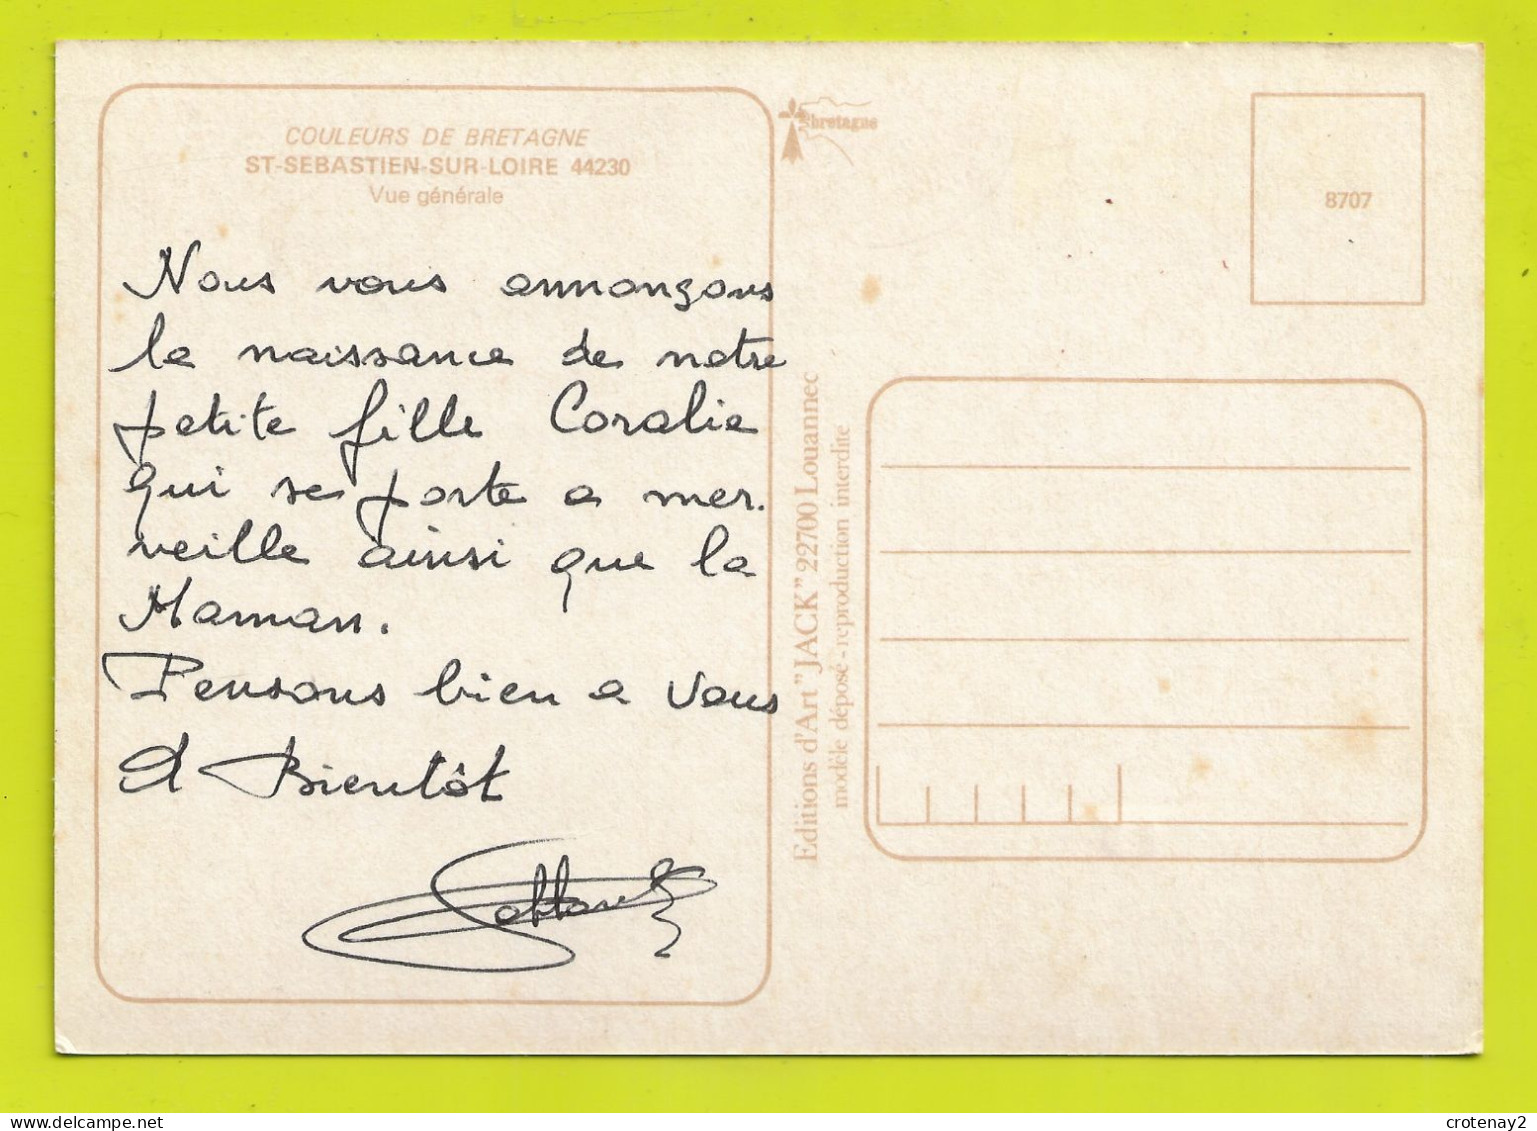 COULEURS DE BRETAGNE
ST-SEBASTIEN-SUR-LOIRE 44230
Vue générale
Nous vous annonçons
la naissance de notre
petite fille Coralie
qui se porte a mer.
veille ainsi que la
Maman.
Pensons bien a vous
A Bientôt
bretagne
8707
Editions d'Art "JACK" 22700 Louannec
modèle déposé - reproduction interdite
crotenay2